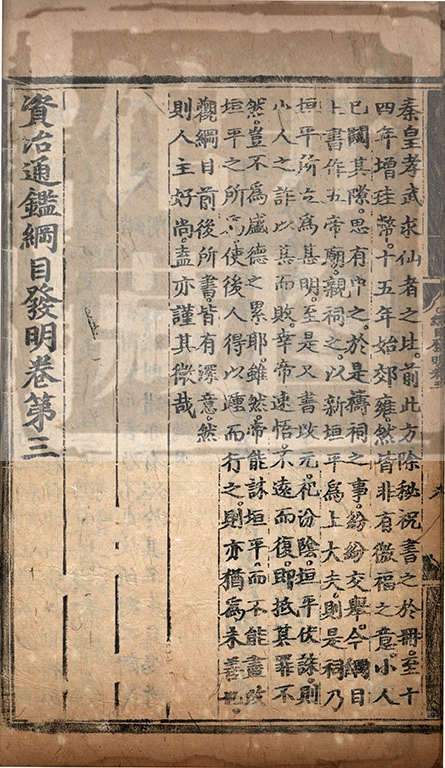 秦皇孝武求仙者之比前此方除秘祝書之於冊至十
四年增珪幣十五年始郊雍然皆非有徼福之意小人
已闚其隙思有中之於是禱祠之事紛紛交舉今綱目
上書作五帝廟親祠之以新垣平爲上大夫則是祠乃
垣平所爲甚明至是又書改元祀汾陰垣平伏誅則
小人之詐以甚而敗幸帝速悟不遠而復即抵其罪不
然豈不爲盛德之累耶雖然帝能誅垣平而不能盡改
垣平之所使後人得以踵而行之則亦猶爲未善也
觀綱目前後所書皆有深意然
則人主好尚盍亦謹其微哉
資治通鑑綱目發明卷第三